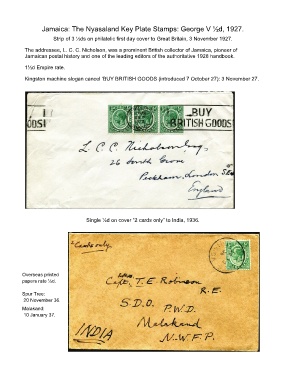 Jamaica: The Nyasaland Key Plate Stamps: George V ½d, 1927.
Strip of 3 ½ds on philatelic first day cover to Great Britain, 3 November 1927.
The addresses, L. C. C. Nicholson, was a prominent British collector of Jamaica, pioneer of
Jamaican postal history and one of the leading editors of the authoritative 1928 handbook.
1½d Empire rate.
Kingston machine slogan cancel 'BUY BRITISH GOODS (introduced 7 October 27): 3 November 27.
BUY
BRITISH GOODS
L. C. C. Nicholson Esq,
26 South Grove
Peckham, London,
England
Single ½d on cover "2 cards only" to India, 1936.
2 Cards only.
Overseas printed
papers rate ½d.
Spur Tree:
20 November 36.
Malakand:
10 January 37.
Capt. T. E. Robinson
R.E.
S.D.O. P.W.D.
Malakand
N.W.F.P.
INDIA